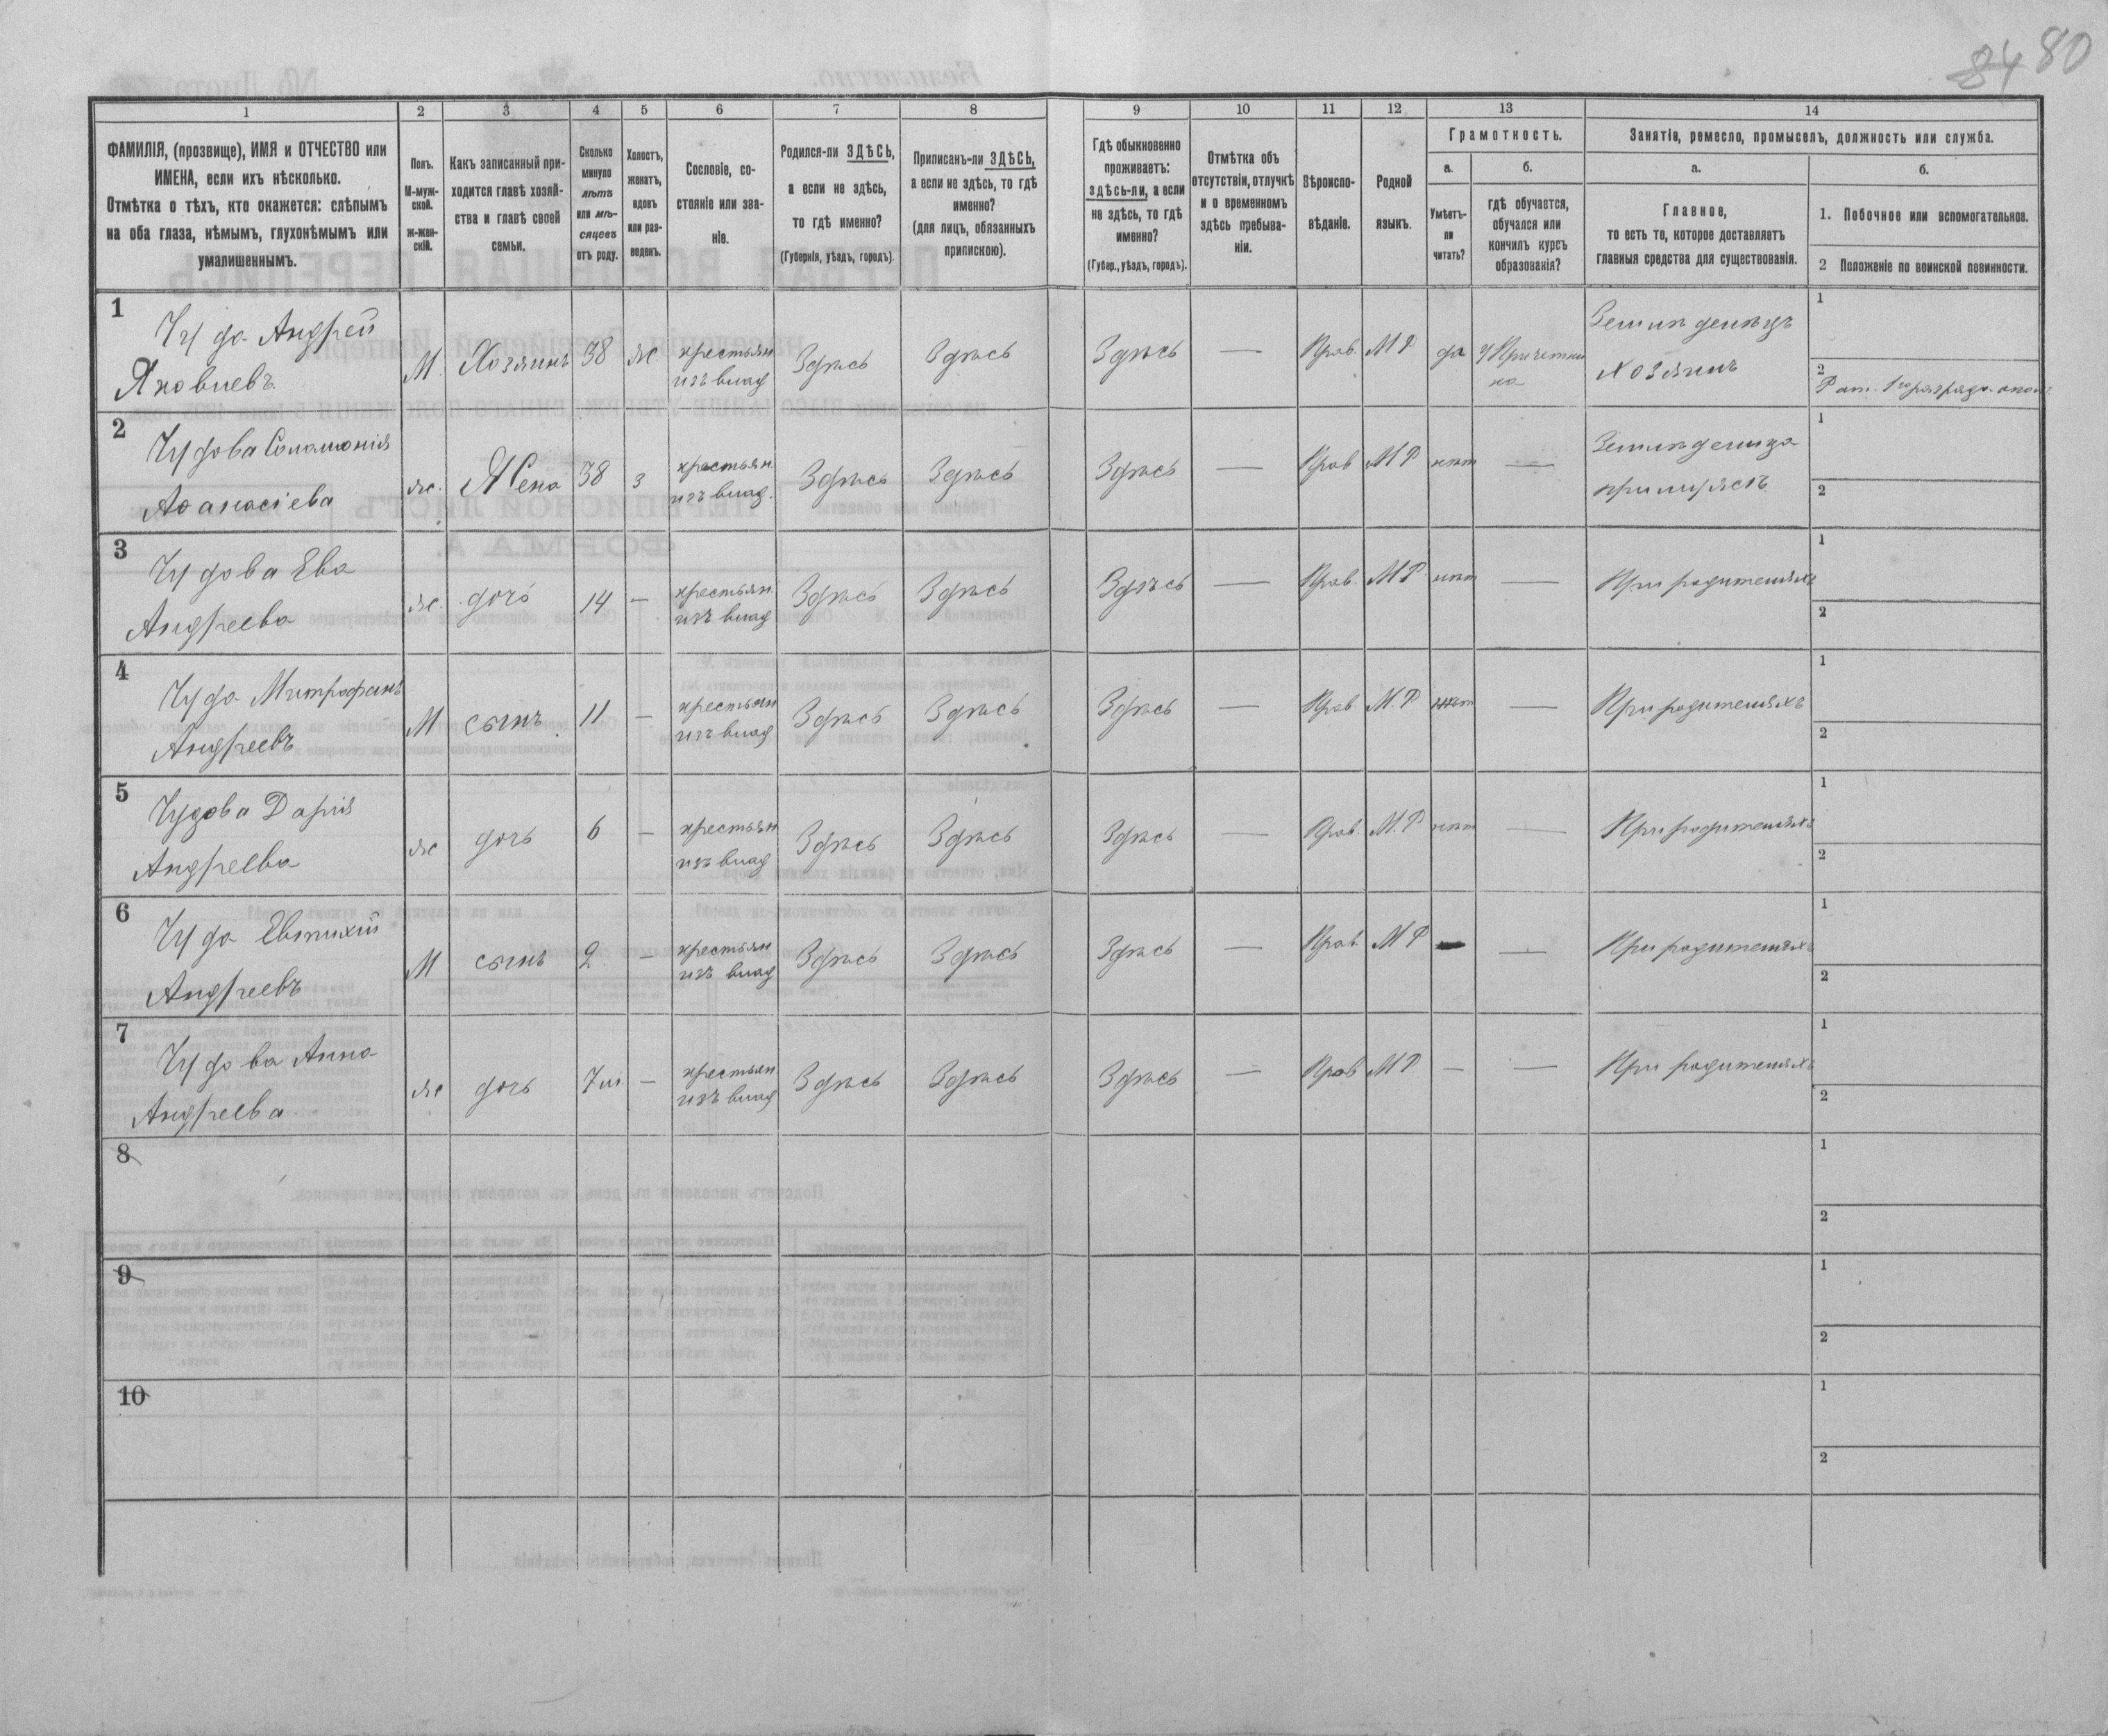 84 80
1 2 3 4 5 6 7 8 9 10 11 12 13 14
ФАМИЛІЯ, (прозвище), ИМЯ и ОТЧЕСТВО или
ИМЕНА, если ихъ нѣсколько.
Отмѣтка о тѣхъ, кто окажется: слѣпымъ
на оба глаза, нѣмымъ, глухонѣмымъ или
умалишеннымъ.
Полъ.
М-муж-
ской.
ж-жен-
скій.
Какъ записанный при-
ходится главѣ хозяй-
ства и главѣ своей
семьи.
Сколько
минуло
лѣтъ
или мѣ-
сяцевъ
отъ роду.
Холостъ,
женатъ,
вдовъ
или раз-
веденъ.
Сословіе, со-
стояніе или зва-
ніе.
Родился-ли ЗДѢСЬ,
а если не здѣсь,
то гдѣ именно?
(Губернія, уѣздъ, городъ).
Приписанъ-ли ЗДѢСЬ,
а если не здѣсь, то гдѣ
именно?
(для лицъ, обязанныхъ
припискою).
Гдѣ обыкновенно
проживаетъ:
здѣсь-ли, а если
не здѣсь, то гдѣ
именно?
(Губер., уѣздъ, городъ).
Отмѣтка объ
отсутствіи, отлучкѣ
и о временномъ
здѣсь пребыва-
ніи.
Вѣроиспо-
вѣданіе.
Родной
языкъ.
Грамотность.
а.
Умѣетъ-
ли
читать?
б.
гдѣ обучается,
обучался или
кончилъ курсъ
образованія?
Занятіе, ремесло, промыселъ, должность или служба.
а.
Главное,
то есть то, которое доставляетъ
главныя средства для существованія.
б.
1. Побочное или вспомогательное.
2 Положеніе по воинской повинности.
1 Чуда Андрей М Хозяинъ 38 ж. крестьян Здѣсь Здѣсь Здѣсь — Прав. М Р да у Причетни Земледѣлецъ 1
Яковлевъ изъ влад ка хозяинъ 2 Рат. 1го разряда опол
2 Чудова Соломонія ж. Жена 38 з крестьян Здѣсь Здѣсь Здѣсь — Прав М Р нѣт — Земледѣлица 1
Афанасіева изъ влад. при мужѣ 2
3 Чудова Ева ж. дочь 14 — крестьян Здѣсь Здѣсь Здѣсь — Прав. М Р нѣт — При родителяхъ 1
Андреева изъ влад 2
4 Чуда Митрофанъ М сынъ 11 — крестьян Здѣсь Здѣсь Здѣсь — Прав М. Р нѣт — При родителяхъ 1
Андреевъ изъ влад 2
5 Чудова Дарія ж дочь 6 — крестьян Здѣсь Здѣсь Здѣсь — Прав. М. Р нѣт — При родителяхъ 1
Андреева изъ влад 2
6 Чуда Евтихій М сынъ 2 — крестьян Здѣсь Здѣсь Здѣсь — Прав. М Р — — При родителяхъ 1
Андреевъ изъ влад 2
7 Чудова Анна ж дочь 7 м. — крестьян Здѣсь Здѣсь Здѣсь — Прав М Р — — При родителяхъ 1
Андреева. изъ влад 2
8 1
2
9 1
2
10 1
2